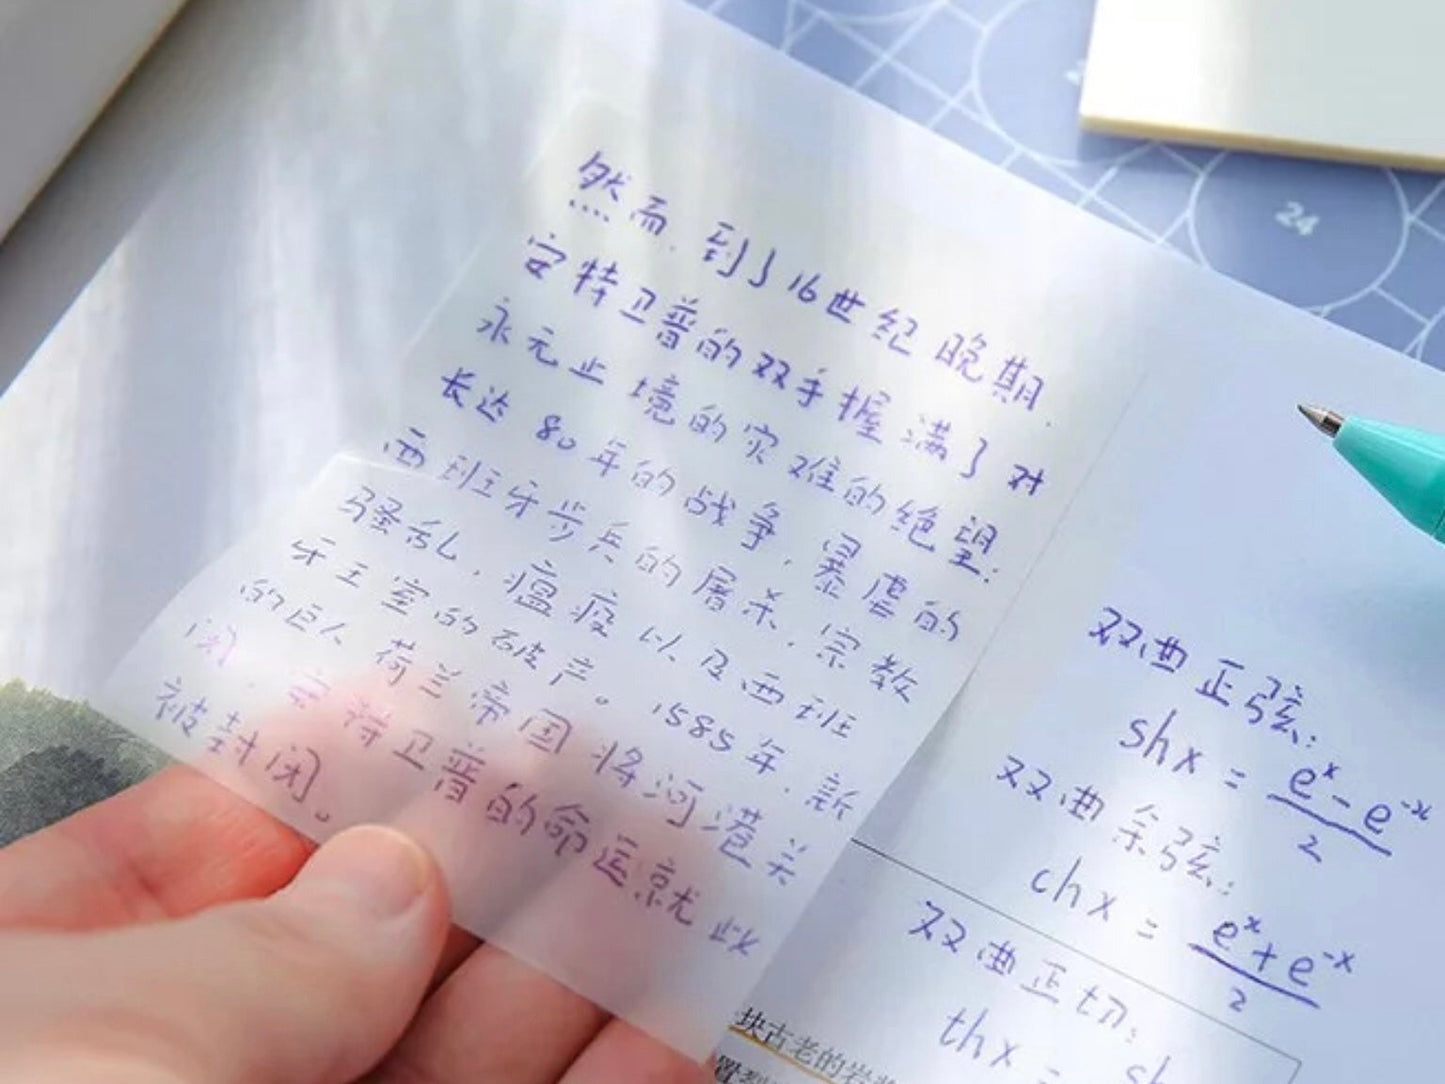 然而，到了16世纪晚期，
安特卫普的双手握满了对
永无止境的灾难的绝望。
长达80年的战争，暴虐的
西班牙步兵的屠杀，宗教
骚乱，瘟疫以及西班
牙王室的破产。1585年，新
的巨人荷兰帝国将河港关
闭，安特卫普的命运就此
被封闭。
24
双曲正弦：
shx = (e^x - e^-x)/2
双曲余弦：
chx = (e^x + e^-x)/2
双曲正切：
thx = sh
块古老的岩
置